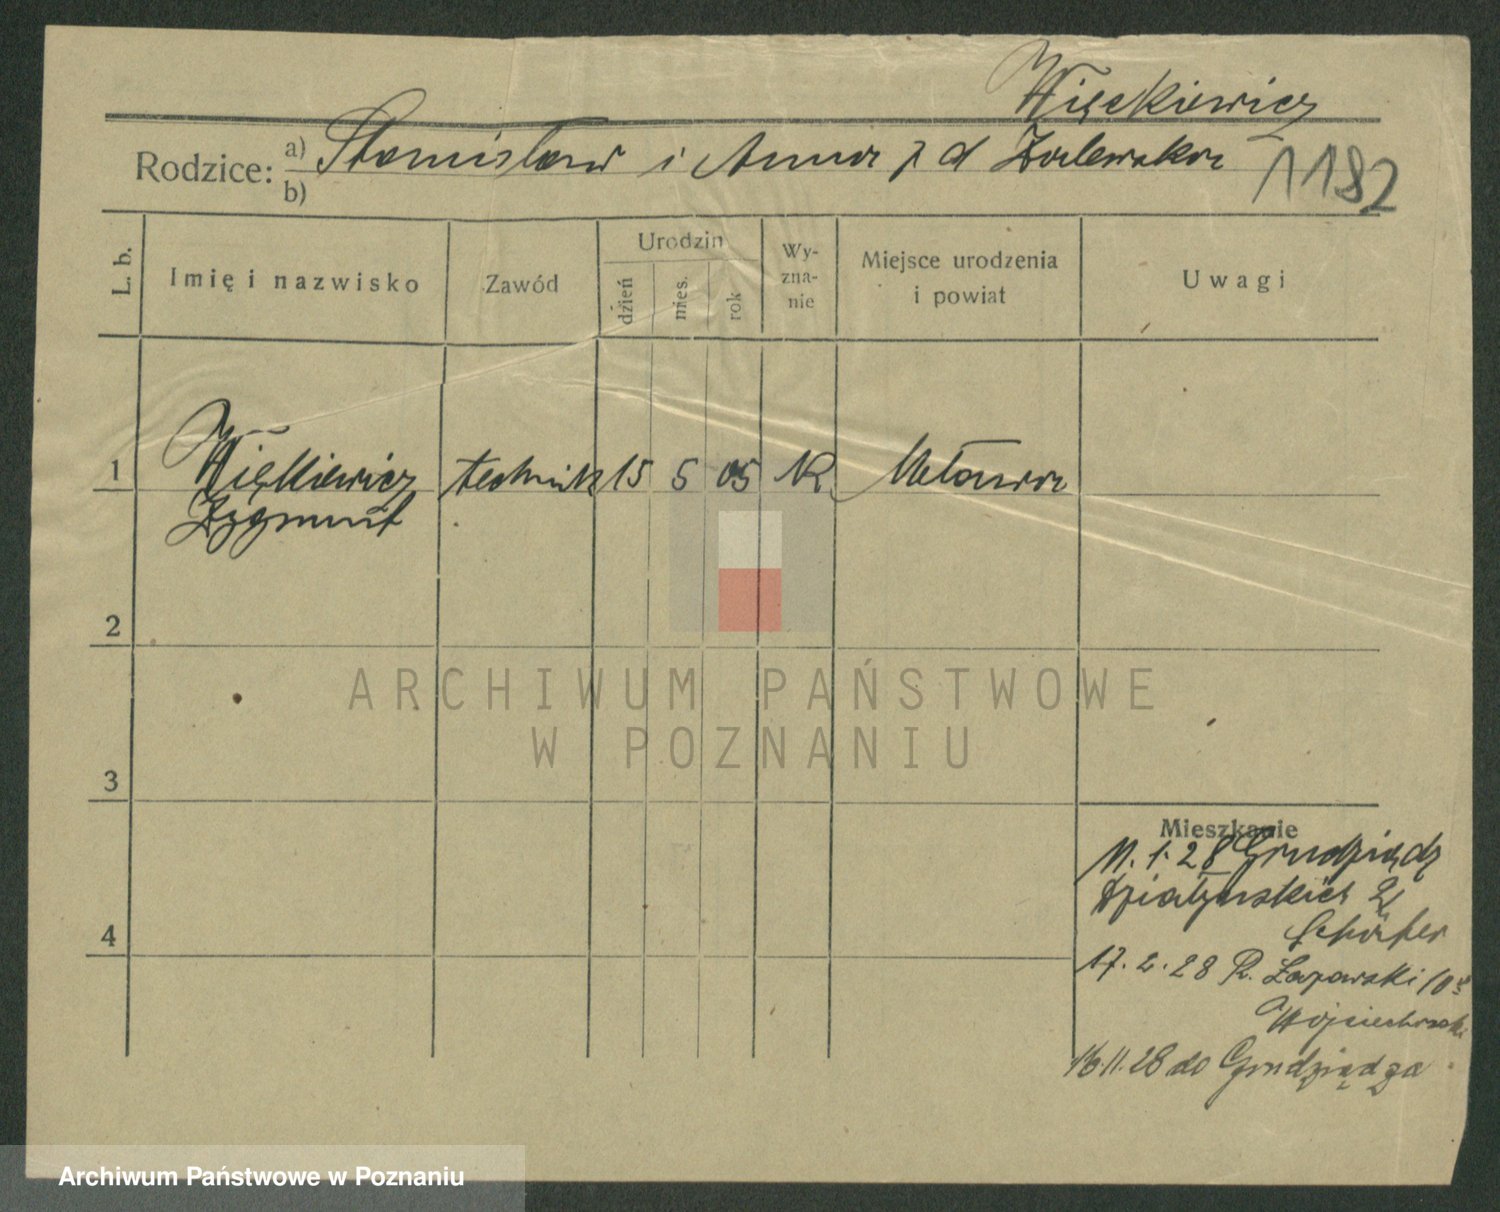 Więckiewicz
1182
Rodzice: a) Stanisław i Anna z d Zalewska
b)
L. b.
Imię i nazwisko
Zawód
Urodzin
dzień
mies.
rok
Wy-
zna-
nie
Miejsce urodzenia
i powiat
Uwagi
1 Więckiewicz technik 15 5 05 K Mława
Zygmunt
2
ARCHIWUM PAŃSTWOWE
W POZNANIU
3
Mieszkanie
11.1.28 Grudziądz
Działyńskich
Schäfer
4
17.2.28 R. 10
Wojciechowski
16.11.28 do Grudziądza
Archiwum Państwowe w Poznaniu